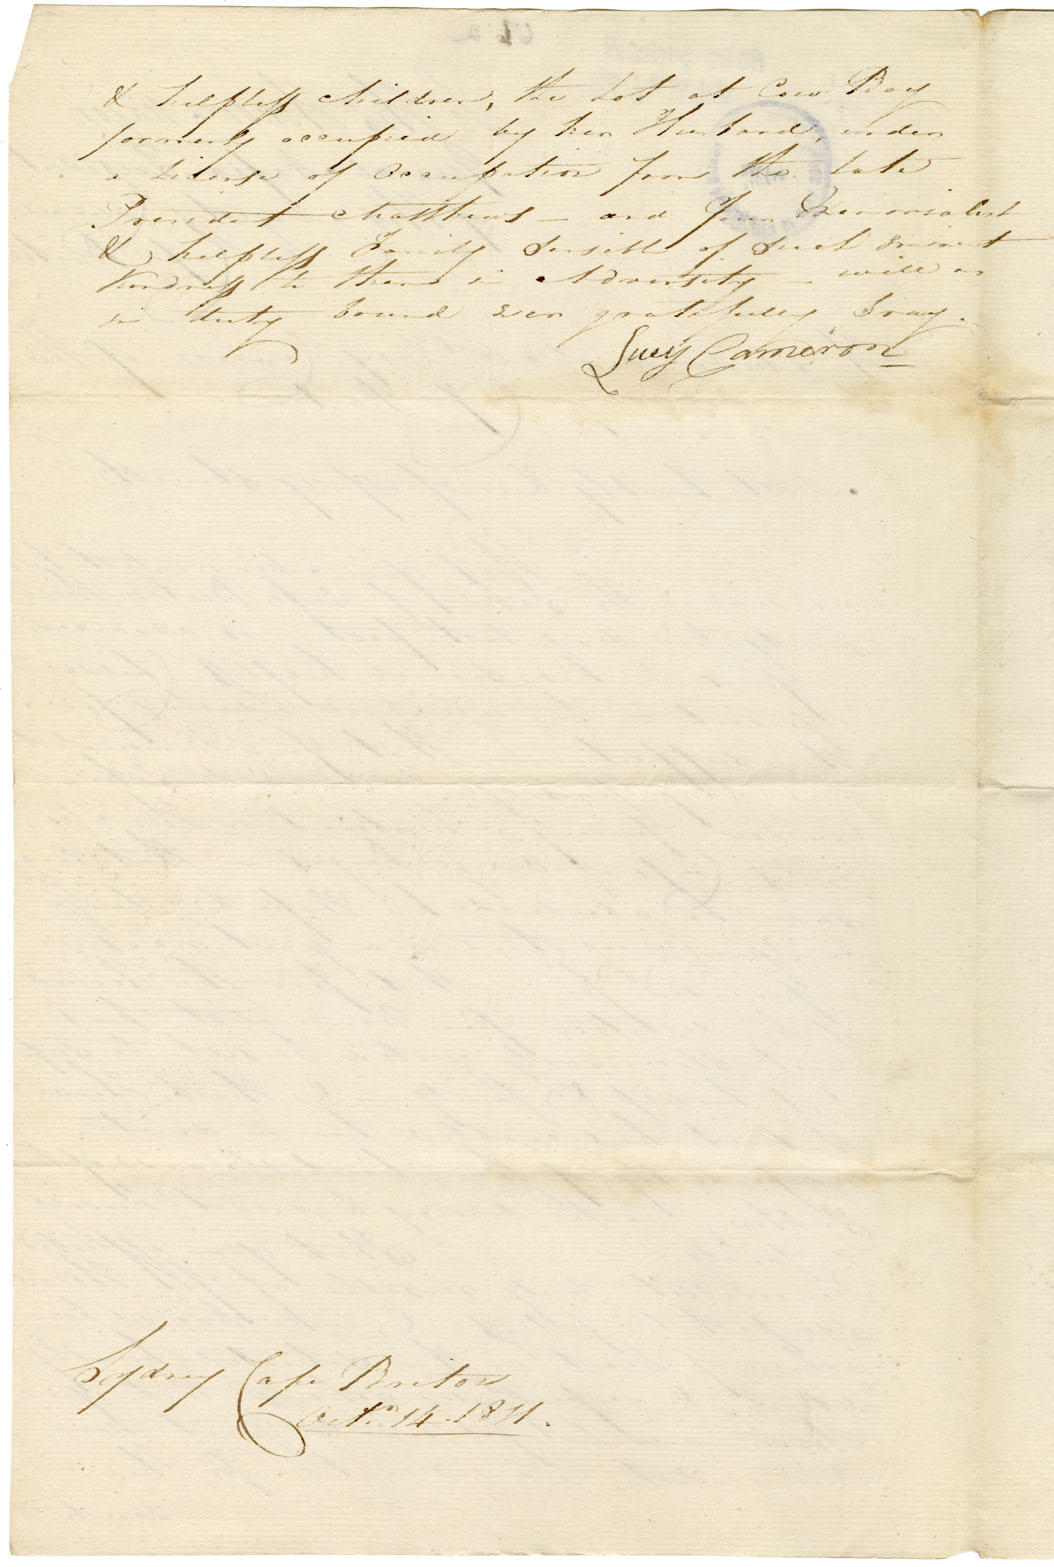 & helpless children, the Lot at Cow Bay
formerly occupied by her Husband, under
a License of Occupation from the late
President Matthews – and Your Memorialist
& helpless Family Sensible of Such
Kindness to them in Adversity – will as
in duty bound ever gratefully Pray.
Lucy Cameron
Sydney Cape Briton
Octr. 14. 1811.